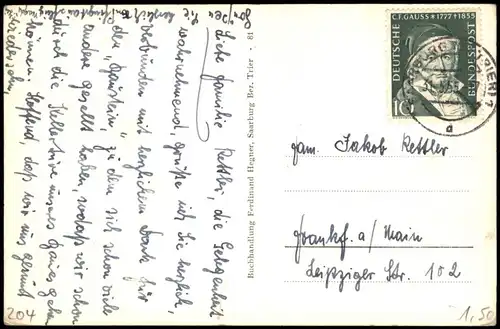 Liebe Familie Rettler, die Gelegenheit
wahrnehmend, grüße ich Sie herzlich,
verbunden mit herzlichem Dank für
den "
zu dem sich schon viele
andere gesellt haben, sodaß wir schon
durch die Kellertüre unseres Hauses gehen
können. Hoffend, daß wir uns gesund
wiedersehn,
Buchhandlung Ferdinand Hegner, Saarburg Bez. Trier · 81
DEUTSCHE
C.F. GAUSS * 1777 † 1855
BUNDESPOST
10
Fam. Jakob Rettler
Frankf. a/Main
Leipziger Str. 102
204
1,50